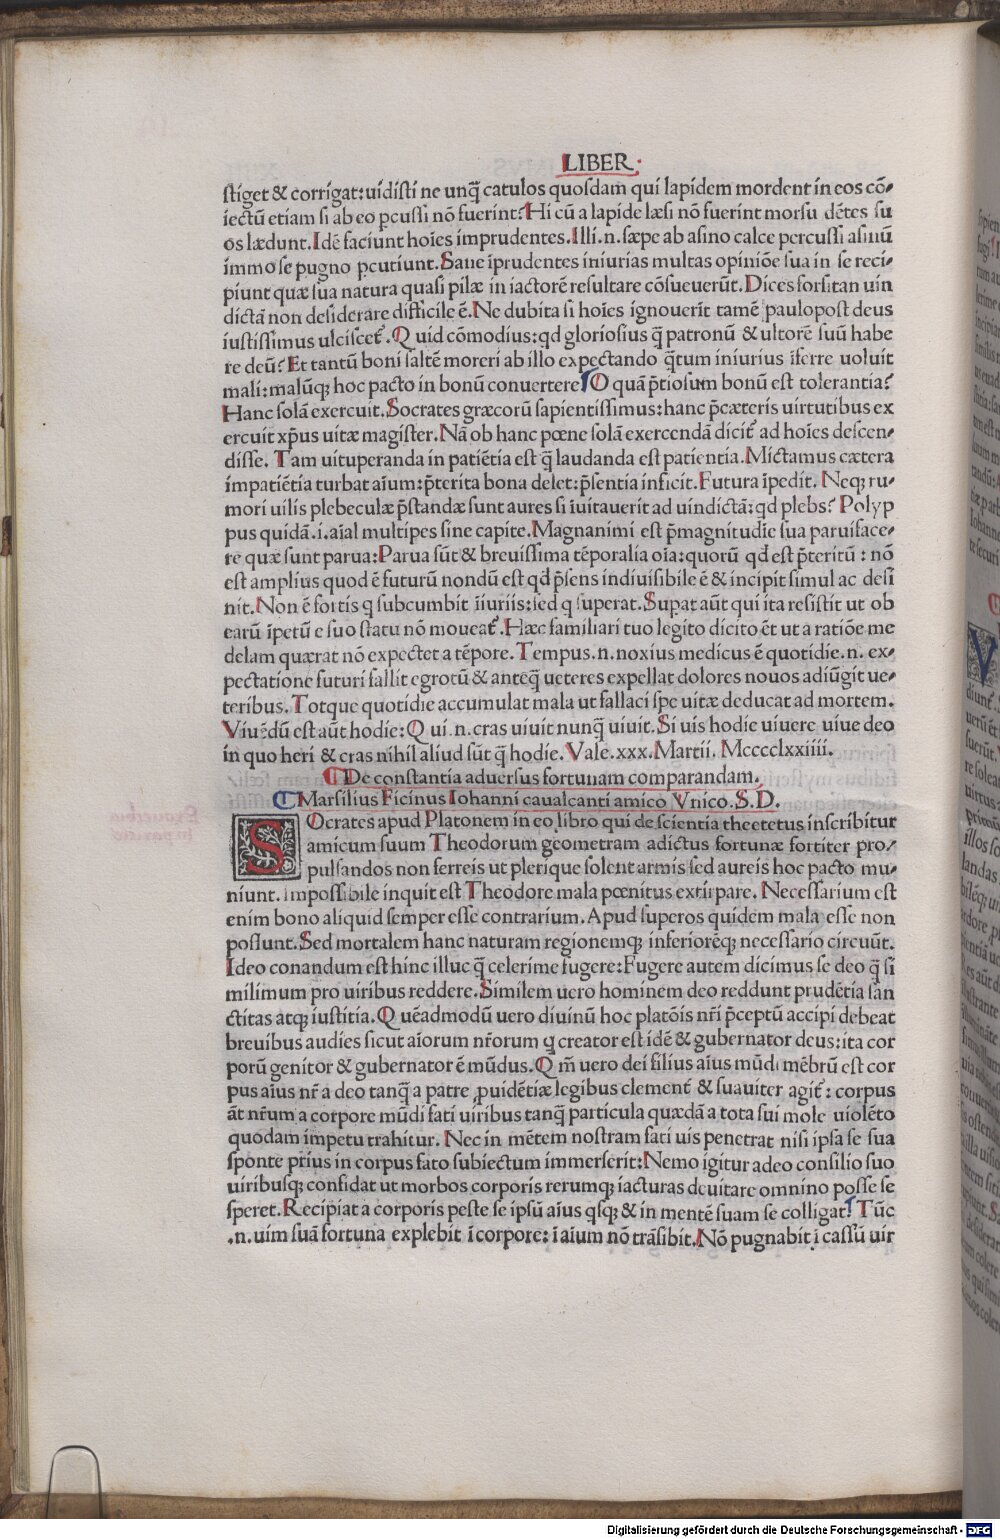 LIBER.
stiget & corrigat:uidisti ne unq̃ catulos quosdam qui lapidem mordent in eos cō-
iectū etiam si ab eo p̱cussi nō fuerint? Hi cū a lapide læsi nō fuerint morsu dētes su
os lædunt. Idē faciunt hoīes imprudentes. Illi.n.sæpe ab asino calce percussi asinū
immo se pugno p̱cutiunt. Sane īprudentes iniurias multas opiniōe sua in se reci-
piunt quæ sua natura quasi pilæ in iactorē resultare cōsueuerūt. Dices forsitan uin
dictā non desiderare difficile ē. Ne dubita si hoīes ignouerīt tamē paulopost deus
iustissimus ulcisceť. Quid cōmodius:qd gloriosius q̃ patronū & ultorē suū habe
re deū? Et tantū boni saltē moreri ab illo expectando q̃tum iniurius īferre uoluit
mali:malūq; hoc pacto in bonū conuertere¶O quā p̄tiosum bonū est tolerantia?
Hanc solā exercuit. Socrates græcorū sapientissimus:hanc p̄cæteris uirtutibus ex
ercuit xp̄us uitæ magister. Nā ob hanc pœne solā exercendā diciť ad hoīes descen-
disse. Tam uituperanda in patiētia est q̃ laudanda est patientia. Mictamus cætera
impatiētia turbat aīum:p̄terita bona delet:p̄sentia inficit. Futura īpedit. Neq; ru-
mori uilis plebeculæ p̄standæ sunt aures si īuitauerit ad uindictā:qd plebs? Polyp
pus quidā.i.aīal multipes sine capite. Magnanimi est p̄magnitudīe sua paruiface-
re quæ sunt parua:Parua sūt & breuissima tēporalia oīa:quorū qd est p̄teritū : nō
est amplius quod ē futurū nondū est qd p̄sens indiuisibile ē & incipit simul ac desi
nit. Non ē fortis q subcumbit īiuriis:sed q superat. Supat aūt qui ita resistit ut ob
earū īpetū e suo statu nō moueať. Hæc familiari tuo legito dicito ēt ut a ratiōe me
delam quærat nō expectet a tēpore. Tempus.n.noxius medicus ē quotidie.n.ex-
pectatione futuri fallit egrotū & anteq̃ ueteres expellat dolores nouos adiūgit ue-
teribus. Totque quotidie accumulat mala ut fallaci spe uitæ deducat ad mortem.
Viuēdū est aūt hodie: Qui.n.cras uiuit nunq̃ uiuit. Si uis hodie uiuere uiue deo
in quo heri & cras nihil aliud sūt q̃ hodie. Vale.xxx.Martii.Mcccclxxiiii.
¶De constantia aduersus fortunam comparandam.
¶Marsilius Ficinus Iohanni caualcanti amico Vnico.S.D.
SOcrates apud Platonem in eo libro qui de scientia theetetus inscribitur
amicum suum Theodorum geometram adictus fortunæ fortiter pro-
pulsandos non ferreis ut plerique solent armis sed aureis hoc pacto mu-
niunt. Impossibile inquit est Theodore mala pœnitus extirpare. Necessarium est
enim bono aliquid semper esse contrarium. Apud superos quidem mala esse non
possunt. Sed mortalem hanc naturam regionemq; inferiorēq; necessario circuūt.
Ideo conandum est hinc illuc q̃ celerime fugere:Fugere autem dicimus se deo q̃ si
milimum pro uiribus reddere. Similem uero hominem deo reddunt prudētia san
ctitas atq; iustitia. Quēadmodū uero diuinū hoc platōis nr̄i p̄ceptū accipi debeat
breuibus audies sicut aīorum nr̄orum q creator est idē & gubernator deus:ita cor
porū genitor & gubernator ē mūdus. Qm̄ uero dei filius aīus mūdi mēbrū est cor
pus aīus nr̄ a deo tanq̃ a patre ꝓuidētiæ legibus clementī & suauiter agiť: corpus
āt nr̄um a corpore mūdi fati uiribus tanq̃ particula quædā a tota sui mole uiolēto
quodam impetu trahitur. Nec in mētem nostram fati uis penetrat nisi ipsa se sua
sponte prius in corpus fato subiectum immerserit:Nemo igitur adeo consilio suo
uiribusq; confidat ut morbos corporis rerumq; iacturas deuitare omnino posse se
speret. Recipiat a corporis peste se ipsū aīus qsq; & in mentē suam se colligat¶ Tūc
.n.uim suā fortuna explebit ī corpore: ī aīum nō trāsibit. Nō pugnabit ī cassū uir
Digitalisierung gefördert durch die Deutsche Forschungsgemeinschaft - DFG